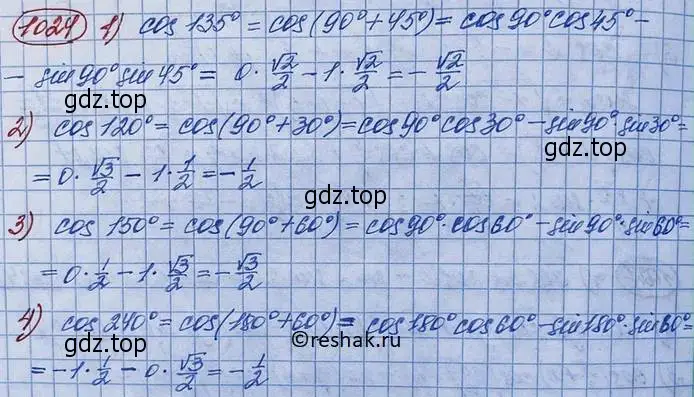 1024 1) cos 135° = cos(90° + 45°) = cos 90° cos 45° -
- sin 90° sin 45° = 0 · √2/2 - 1 · √2/2 = - √2/2
gdz.top
2) cos 120° = cos(90° + 30°) = cos 90° cos 30° - sin 90° · sin 30° =
= 0 · √3/2 - 1 · 1/2 = - 1/2
gdz.top
3) cos 150° = cos(90° + 60°) = cos 90° · cos 60° - sin 90° · sin 60° =
= 0 · 1/2 - 1 · √3/2 = - √3/2
gdz.top
4) cos 240° = cos(180° + 60°) = cos 180° cos 60° - sin 180° · sin 60° =
©reshak.ru
= -1 · 1/2 - 0 · √3/2 = - 1/2
gdz.top